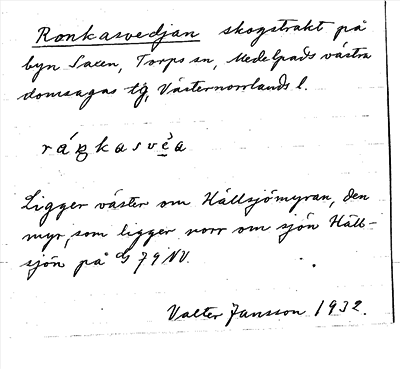 Ronkasvedjan skogstrakt på
byn Saxen, Torps sn, Medelpads västra
domsagas tg, Västernorrlands l.
Ligger väster om Hällsjömyran, den
myr, som ligger norr om sjön Häll-
sjön på G 79 NV.
Valter Jansson 1932.